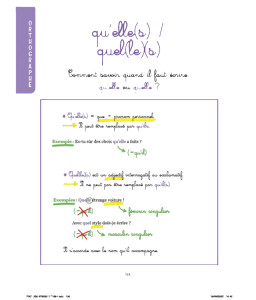 ORTHOGRAPHE
qu'elle(s) /
quel(le)(s)
Comment savoir quand il faut écrire
qu'elle ou quelle ?
* Qu'elle(s) = que + pronom personnel
Il peut être remplacé par qu'il(s)
Exemple : As-tu vu des choix qu'elle a faits ?
(= qu'il)
* Quelle(s) est un adjectif interrogatif ou exclamatif
Il ne peut pas être remplacé par qu'il(s)
Exemples : Quelle étrange voiture !
féminin singulier
Avec quel stylo dois-je écrire ?
masculin singulier
Il s'accorde avec le nom qu'il accompagne